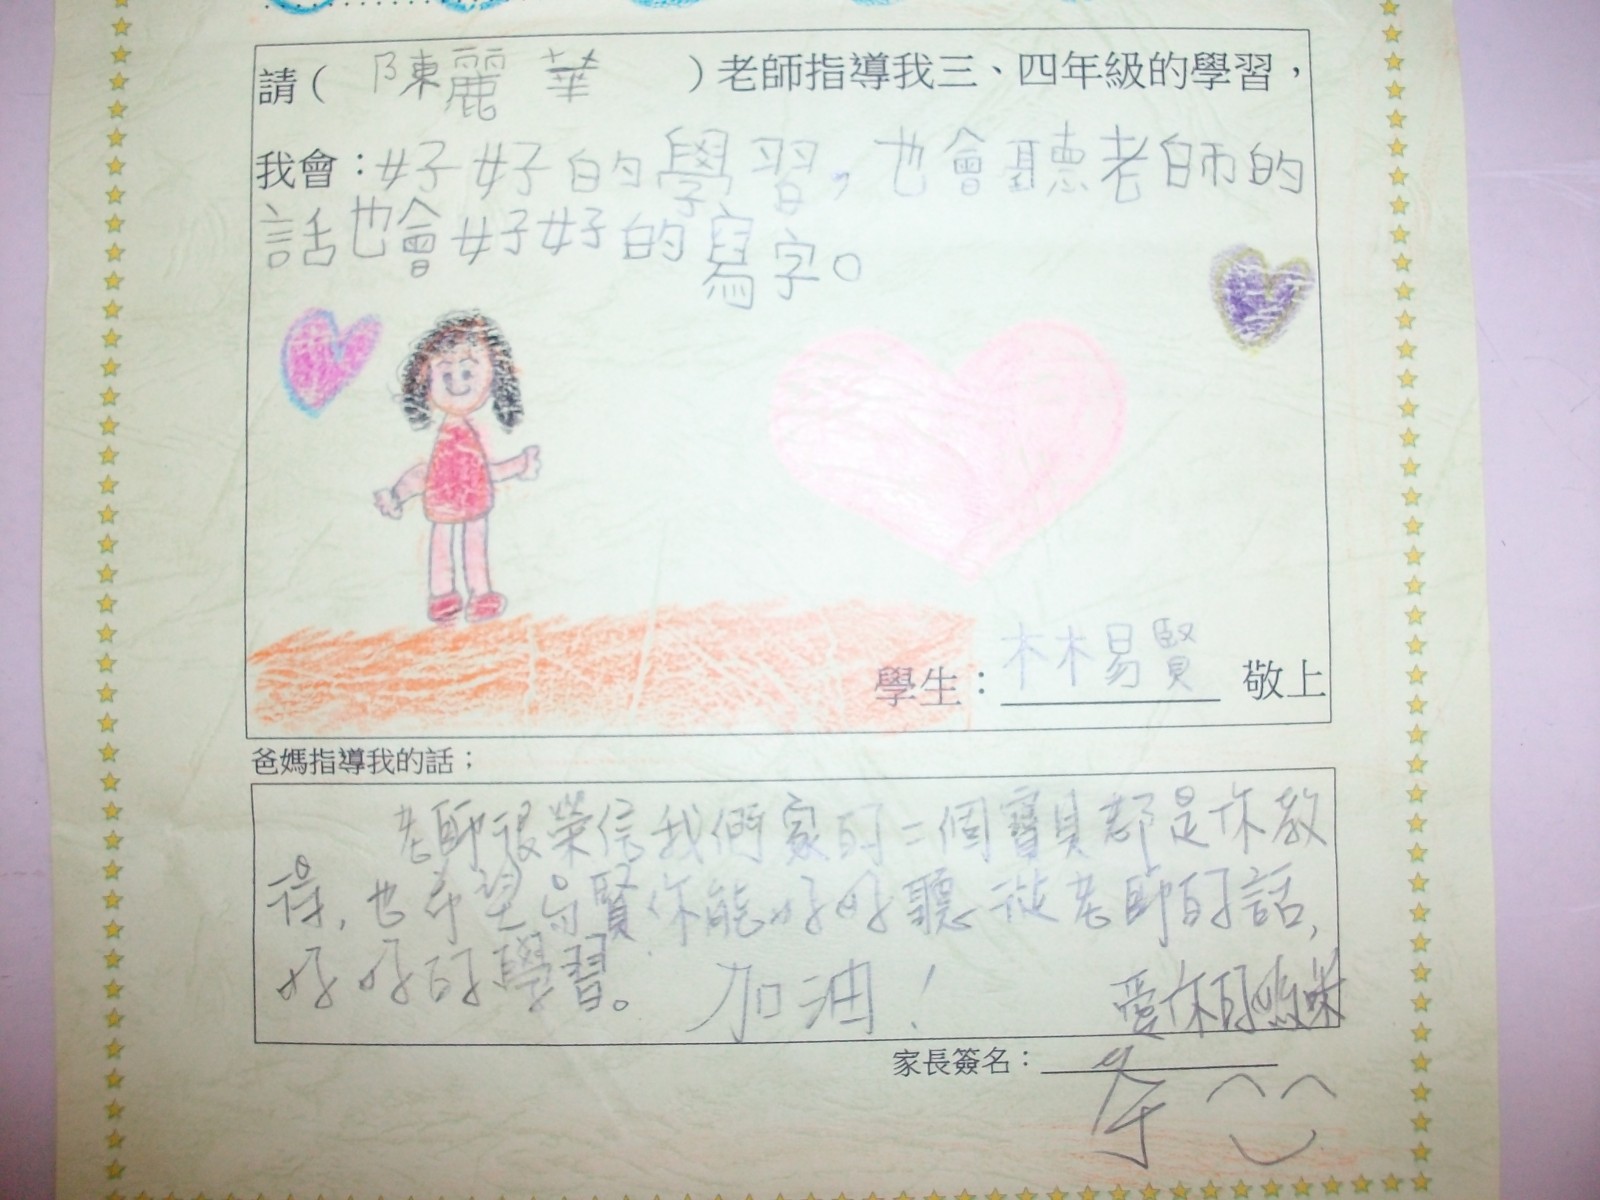 請( 陳麗華 )老師指導我三、四年級的學習，
我會：好好的學習，也會聽老師的
話也會好好的寫字。
學生：林易賢 敬上
爸媽指導我的話；
老師很榮信我們家的二個寶貝都是你教
得，也希望 賢你能好好聽從老師的話，
好好的學習。 加油！ 愛你的媽咪
家長簽名：